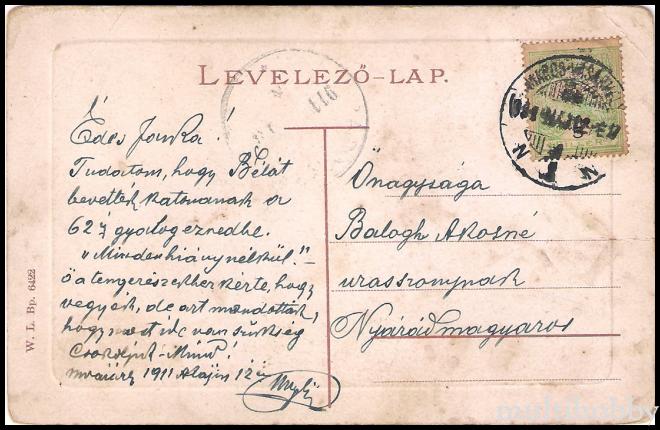 LEVELEZŐ-LAP.
Édes Janka!
Tudatom, hogy Bélát
bevették katonának a
62 gyalogezredbe.
"Minden hiány nélkül."
ő a tengerészethez kérte, hogy
vegyék, de azt mondották,
hogy most ide van szükség
1911 12
Önagysága
Balogh Ákosné
urasszonynak
Nyárádmagyaros
W. L. Bp. 6422
116
multihobby